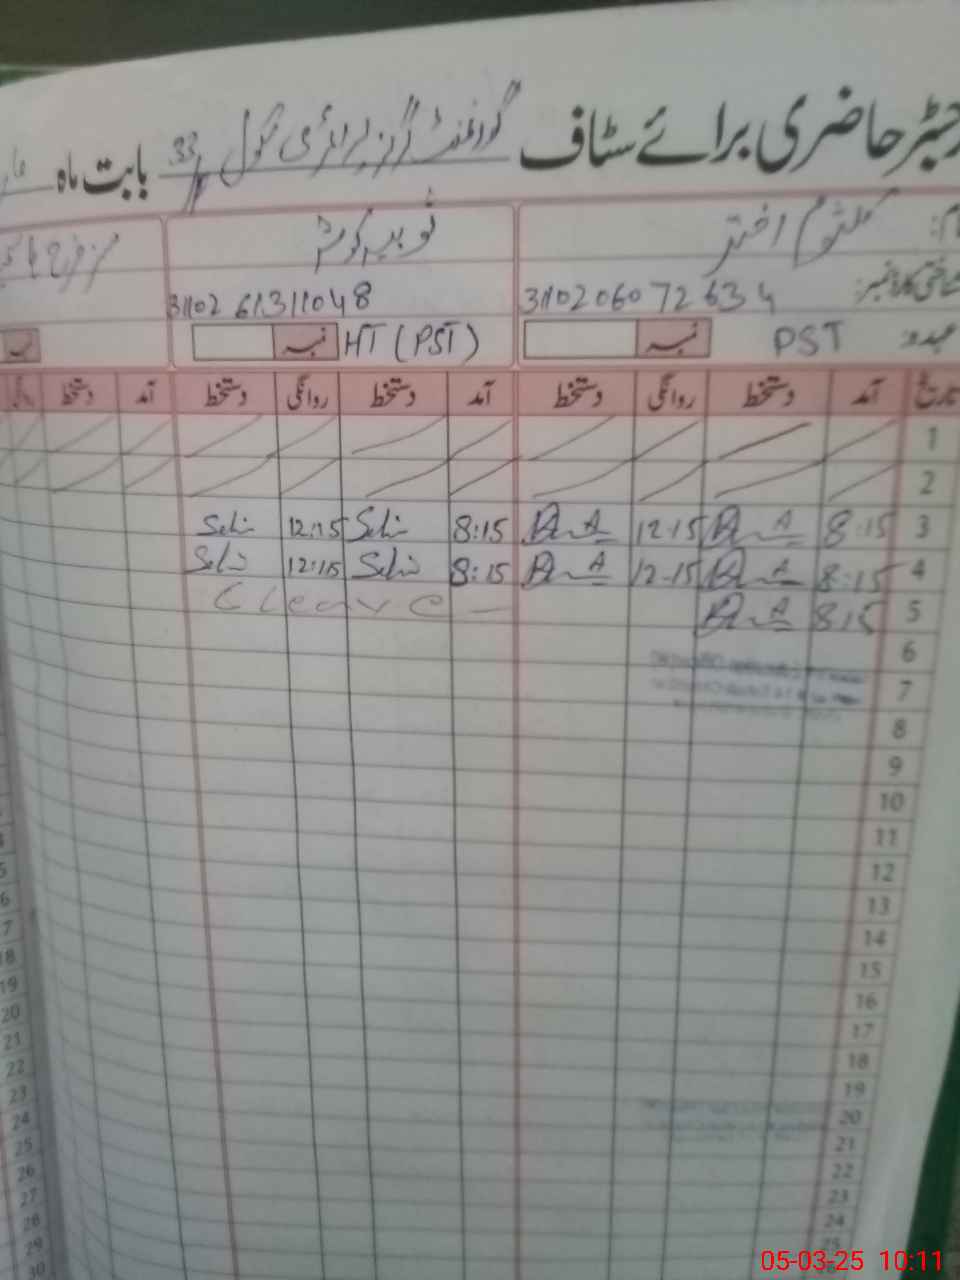 رجسٹر حاضری برائے سٹاف گورنمنٹ گرلز پرائمری سکول 33 بابت ماہ
نام: کلثوم اختر ثوبیہ کوثر
شناختی کارڈ نمبر: 3110206072634 3110261311048
عہدہ: PST نمبر HT (PST) نمبر
تاریخ آمد دستخط روانگی دستخط آمد دستخط روانگی دستخط آمد دستخط روانگی
1
2
3 8:15 12-15 8:15 12:15
4 8:15 12-15 8:15 12:15
5 8:15 C leave
6
7
8
9
10
11
12
13
14
15
16
17
18
19
20
21
22
23
24
25
6
7
18
19
20
21
22
23
24
25
26
27
28
29
30
05-03-25 10:11